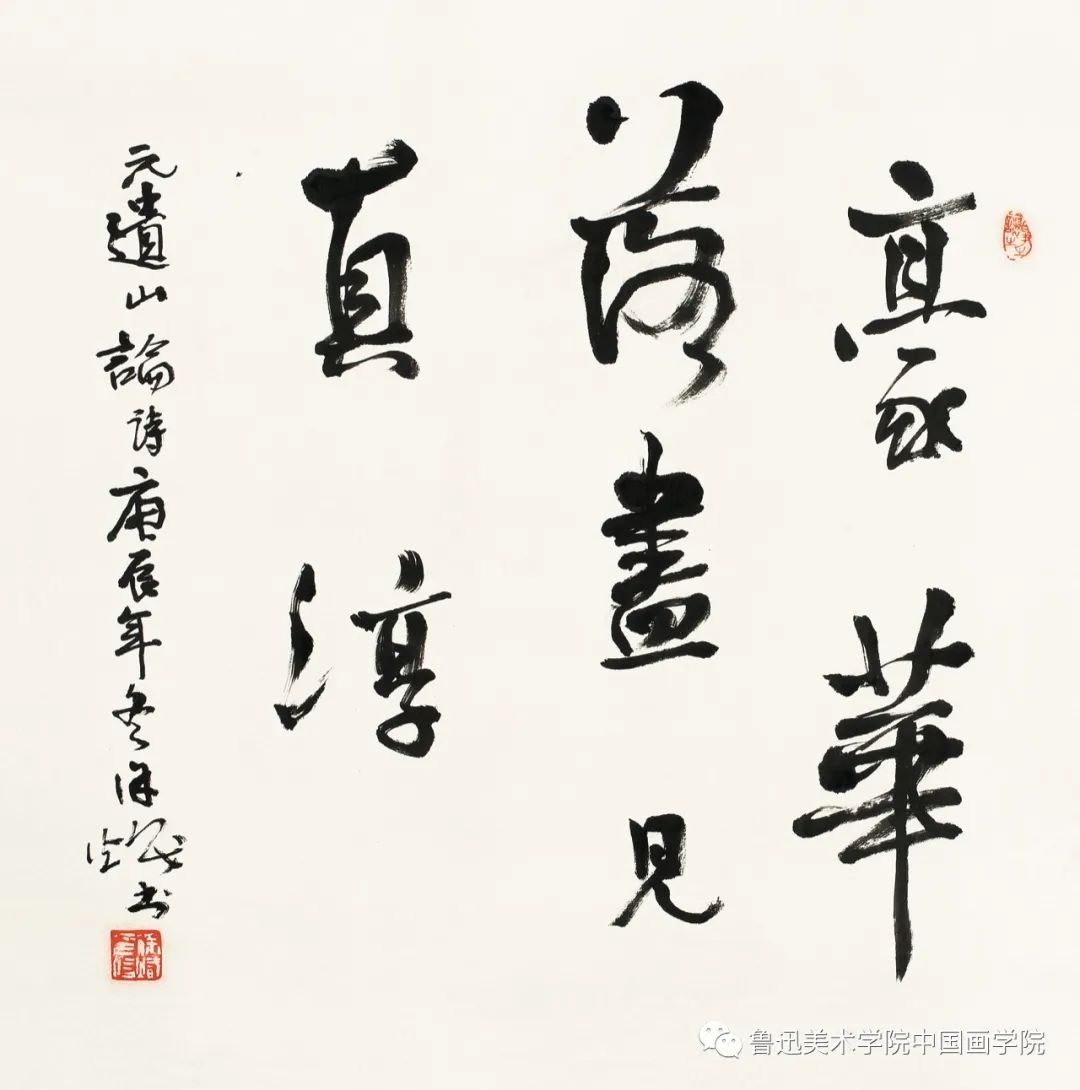 豪華
落盡見
真淳
元遺山論詩庚辰年冬書
鲁迅美术学院中国画学院